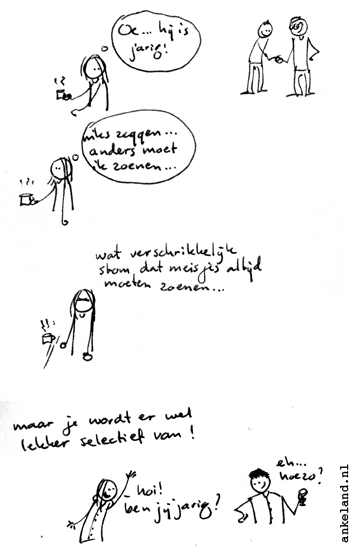 Oe... hij is
jarig!
niks zeggen...
anders moet
ik zoenen...
wat verschrikkelijk
stom, dat meisjes altijd
moeten zoenen...
maar je wordt er wel
lekker selectief van!
- hoi!
ben jij jarig?
eh...
hoezo?
ankeland.nl